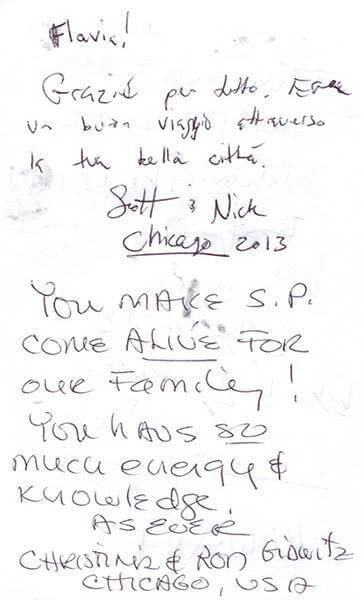 Flavia!
Grazie per tutto. Era
un buon viaggio attraverso
la tua bella città.
Scott & Nick
Chicago 2013
YOU MAKE S.P.
COME ALIVE FOR
OUR FAMILY!
YOU HAVE SO
MUCH ENERGY &
KNOWLEDGE.
AS EVER
CHRISTINA & RON GIDWITZ
CHICAGO, USA